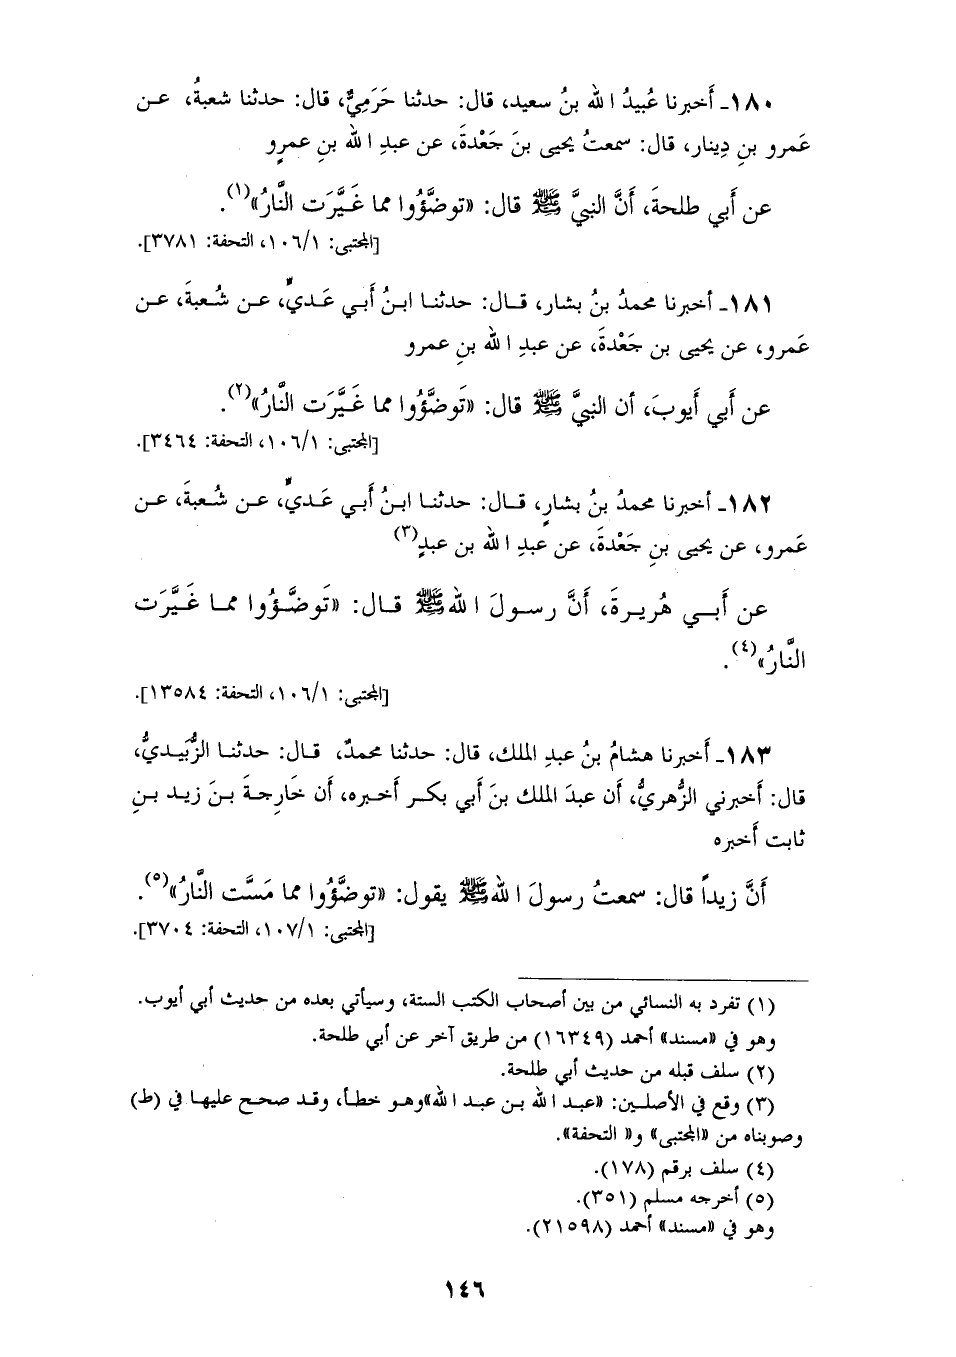 ١٨٠ـ أَخبرنا عُبيدُ الله بنُ سعيد، قال: حدثنا حَرَمِيٌّ، قال: حدثنا شعبةُ، عـن
عَمرو بنِ دِينار، قال: سمعتُ يحيى بنَ جَعْدةَ، عن عبدِ الله بنِ عمرٍو
عن أَبي طلحةَ، أَنَّ النبيَّ ﷺ قال: «توضَّؤُوا مما غَيَّرَت النَّارُ»(١).
[المجتبى: ١٠٦/١، التحفة: ٣٧٨١].
١٨١ـ أخبرنا محمدُ بنُ بشار، قـال: حدثنـا ابـنُ أَبـي عَـديٍّ، عـن شُـعبةَ، عـن
عَمرو، عن يحيى بن جَعْدةَ، عن عبدِ الله بنِ عمرو
عن أَبي أَيوبَ، أن النبيَّ ﷺ قال: «تَوضَّؤُوا مما غَيَّرَت النَّارُ»(٢).
[المجتبى: ١٠٦/١، التحفة: ٣٤٦٤].
١٨٢ـ أخبرنا محمدُ بنُ بشارٍ، قـال: حدثنـا ابـنُ أَبـي عَـديٍّ، عـن شُـعبةَ، عـن
عَمرو، عن يحيى بنِ جَعْدةَ، عن عبدِ الله بن عبدٍ(٣)
عن أَبـــي هُريـرةَ، أَنَّ رسـولَ اللهﷺ قـال: «تَوضَّـؤُوا ممـا غَـيَّرَت
النَّارُ»(٤).
[المجتبى: ١٠٦/١، التحفة: ١٣٥٨٤].
١٨٣ـ أَخبرنا هشامُ بنُ عبدِ الملك، قال: حدثنا محمدٌ، قـال: حدثنـا الزُّبَيـديُّ،
قال: أخبرني الزُّهريُّ، أن عبدَ الملك بنَ أبي بكـر أَخـبره، أن خَارِجـةَ بـنَ زيـد بـنِ
ثابت أَخبره
أَنَّ زيداً قال: سمعتُ رسولَ اللهﷺ يقول: «توضَّؤُوا مما مَسَّت النَّارُ»(٥).
[المجتبى: ١٠٧/١، التحفة: ٣٧٠٤].
(١) تفرد به النسائي من بين أصحاب الكتب الستة، وسيأتي بعده من حديث أبي أيوب.
وهو في «مسند» أحمد (١٦٣٤٩) من طريق آخر عن أبي طلحة.
(٢) سلف قبله من حديث أبي طلحة.
(٣) وقع في الأصلـين: «عبـد الله بـن عبـد الله»وهـو خطـأ، وقـد صحـح عليهـا في (ط)
وصوبناه من «المجتبى» و« التحفة».
(٤) سلف برقم (١٧٨).
(٥) أخرجه مسلم (٣٥١).
وهو في «مسند» أحمد (٢١٥٩٨).
١٤٦